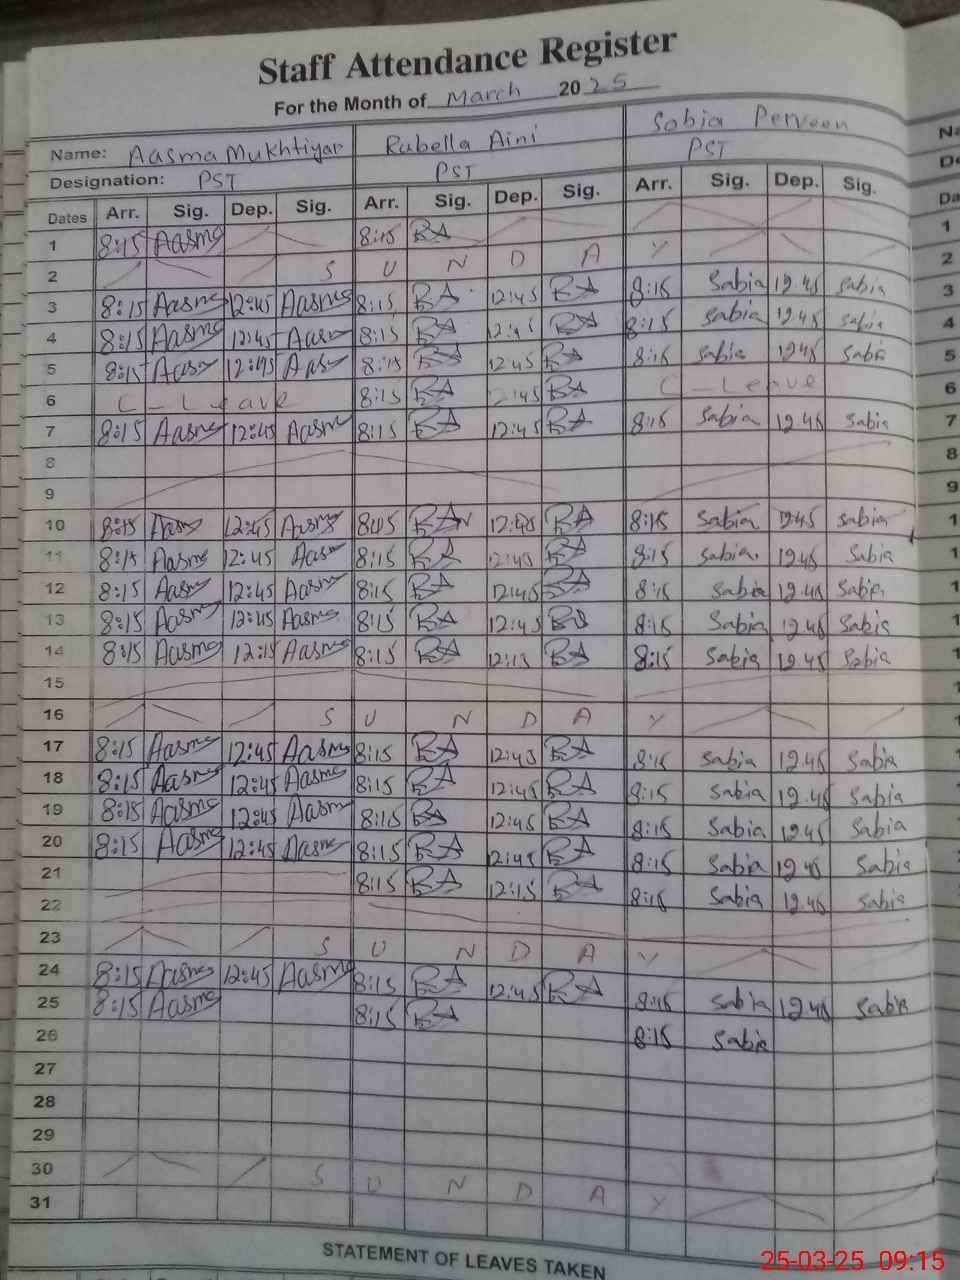 Staff Attendance Register
For the Month of March 2025
Name: Aasma Mukhtiyar Rubella Aini Sobia Perveen
Designation: PST PST PST
Dates Arr. Sig. Dep. Sig. Arr. Sig. Dep. Sig. Arr. Sig. Dep. Sig.
1 8:15 Aasma 8:15 RA
2 S U N D A Y
3 8:15 Aasma 12:45 Aasma 8:15 RA 12:45 RA 8:15 Sabia 12.45 Sabia
4 8:15 Aasma 12:45 Aasm 8:15 RA 12:45 RA 8:15 Sabia 12.45 Sabia
5 8:15 Aasm 12:45 Aasm 8:15 RA 12:45 RA 8:15 Sabia 12.45 Sabia
6 C-Leave 8:15 RA 12:45 RA C-Leave
7 8:15 Aasma 12:45 Aasm 8:15 RA 12:45 RA 8:15 Sabia 12.45 Sabia
8
9
10 8:15 Aasm 12:45 Aasma 8:15 RA 12:45 RA 8:15 Sabia 12.45 Sabia
11 8:15 Aasma 12:45 Aasm 8:15 RA 12:45 RA 8:15 Sabia 12.45 Sabia
12 8:15 Aasm 12:45 Aasm 8:15 RA 12:45 RA 8:15 Sabia 12.45 Sabia
13 8:15 Aasma 12:45 Aasma 8:15 RA 12:45 RA 8:15 Sabia 12.45 Sabia
14 8:15 Aasma 12:15 Aasma 8:15 RA 12:15 RA 8:15 Sabia 12.45 Sabia
15
16 S U N D A Y
17 8:15 Aasma 12:45 Aasma 8:15 RA 12:45 RA 8:15 Sabia 12.45 Sabia
18 8:15 Aasma 12:45 Aasma 8:15 RA 12:45 RA 8:15 Sabia 12.45 Sabia
19 8:15 Aasma 12:45 Aasma 8:15 RA 12:45 RA 8:15 Sabia 12.45 Sabia
20 8:15 Aasma 12:45 Aasma 8:15 RA 12:45 RA 8:15 Sabia 12.45 Sabia
21 8:15 RA 12:15 RA 8:15 Sabia 12.45 Sabia
22
23 S U N D A Y
24 8:15 Aasma 12:45 Aasma 8:15 RA 12:45 RA 8:15 Sabia 12.45 Sabia
25 8:15 Aasma 8:15 RA 8:15 Sabia
26
27
28
29
30 S U N D A Y
31
STATEMENT OF LEAVES TAKEN
25-03-25 09:15